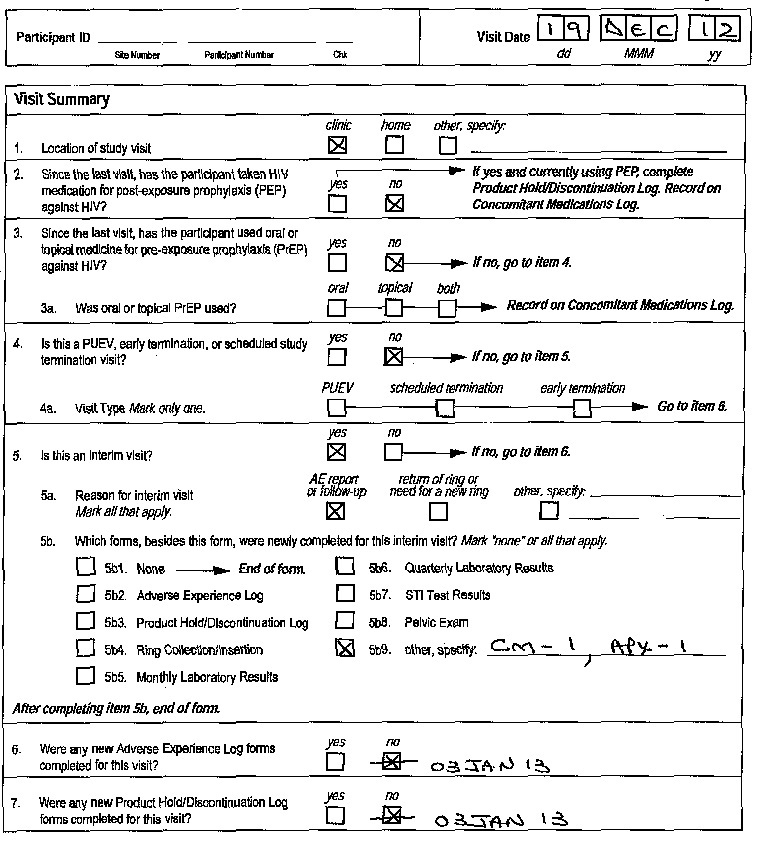 Participant ID
Site Number Participant Number Chk
Visit Date 19 DEC 12
dd MMM yy
Visit Summary
clinic home other, specify:
1. Location of study visit
2. Since the last visit, has the participant taken HIV
medication for post-exposure prophylaxis (PEP)
against HIV?
yes no
If yes and currently using PEP, complete
Product Hold/Discontinuation Log. Record on
Concomitant Medications Log.
3. Since the last visit, has the participant used oral or
topical medicine for pre-exposure prophylaxis (PrEP)
against HIV?
yes no
If no, go to item 4.
oral topical both
3a. Was oral or topical PrEP used?
Record on Concomitant Medications Log.
4. Is this a PUEV, early termination, or scheduled study
termination visit?
yes no
If no, go to item 5.
PUEV scheduled termination early termination
4a. Visit Type Mark only one.
Go to item 6.
yes no
5. Is this an interim visit?
If no, go to item 6.
5a. Reason for interim visit
Mark all that apply.
AE report
or follow-up
return of ring or
need for a new ring
other, specify:
5b. Which forms, besides this form, were newly completed for this interim visit? Mark "none" or all that apply.
5b1. None End of form.
5b2. Adverse Experience Log
5b3. Product Hold/Discontinuation Log
5b4. Ring Collection/Insertion
5b5. Monthly Laboratory Results
5b6. Quarterly Laboratory Results
5b7. STI Test Results
5b8. Pelvic Exam
5b9. other, specify: CM-1, APX-1
After completing item 5b, end of form.
6. Were any new Adverse Experience Log forms
completed for this visit?
yes no
03 JAN 13
7. Were any new Product Hold/Discontinuation Log
forms completed for this visit?
yes no
03 JAN 13